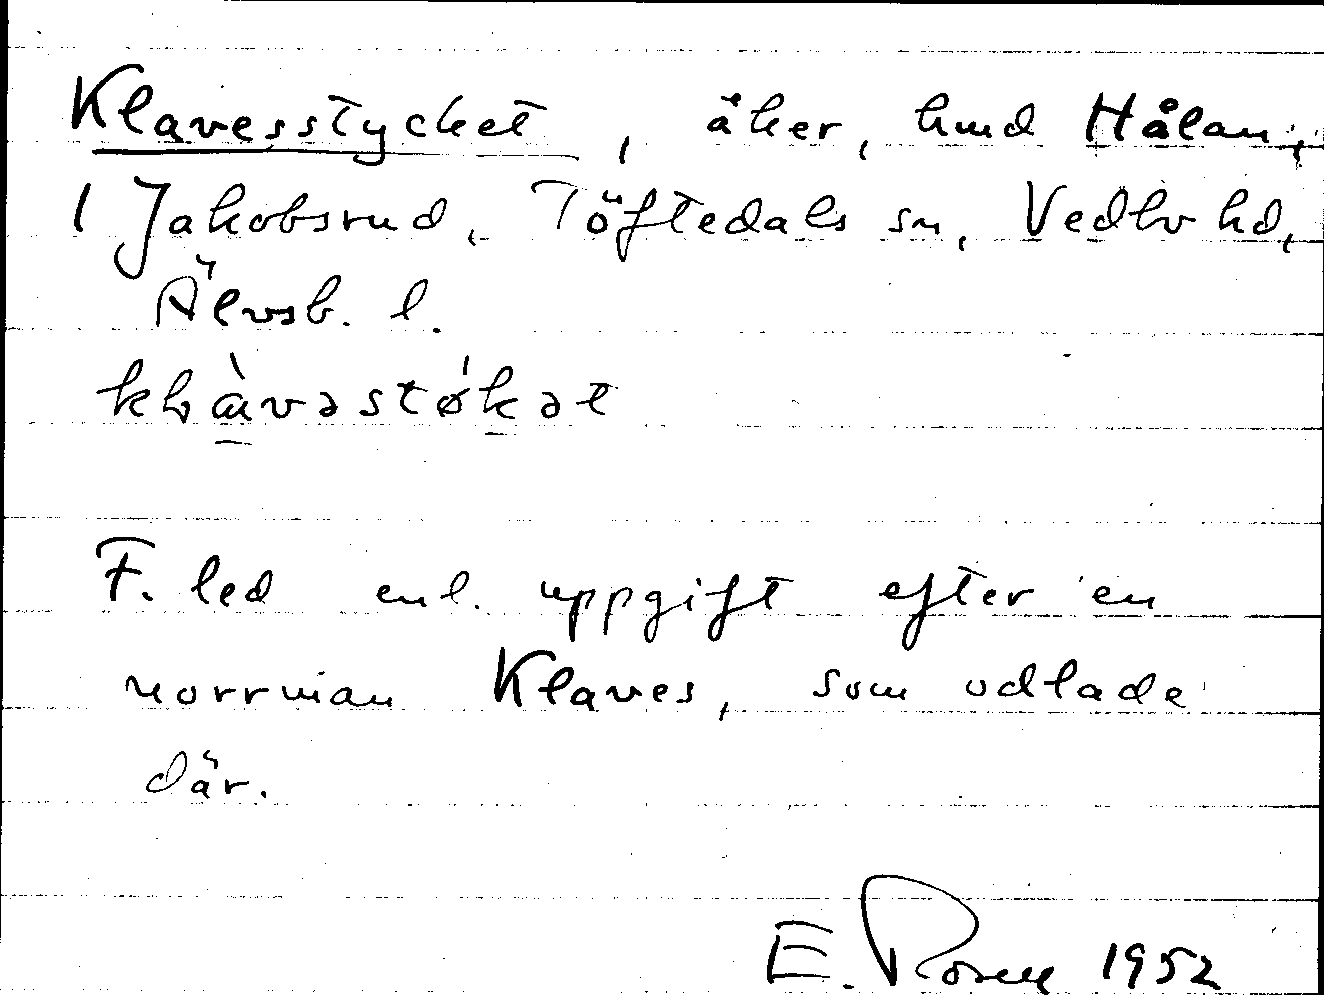 Klavesstycket, åker, hmd Hålan,
1 Jakobsrud, Töftedals sn, Vedbo hd,
Älvsb. l.
F. led enl. uppgift efter en
norrman Klaves, som odlade
där.
E. Rosell 1952